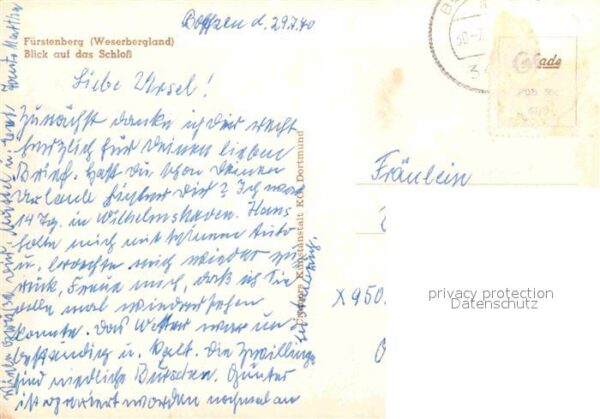 Boffzen d. 29.7.70
Fürstenberg (Weserbergland)
Blick auf das Schloß
Liebe Ursel!
Zunächst danke ich dir recht
herzlich für deinen lieben
Brief. Hast du schon deinen
Urlaub hinter dir? Ich war
14 Tg. in Wilhelmshaven. Hans
holte mich mit seinem Auto
u. brachte mich wieder zu
rück. Freue mich, daß ich Sie
alle mal wiedersehen
konnte. Das Wetter war un
beständig u. kalt. Die Zwillinge
sind niedliche Burschen. Günter
ist operiert worden nochmal an
Cramers Kunstanstalt KG, Dortmund
Fräulein
X 950
privacy protection
Datenschutz